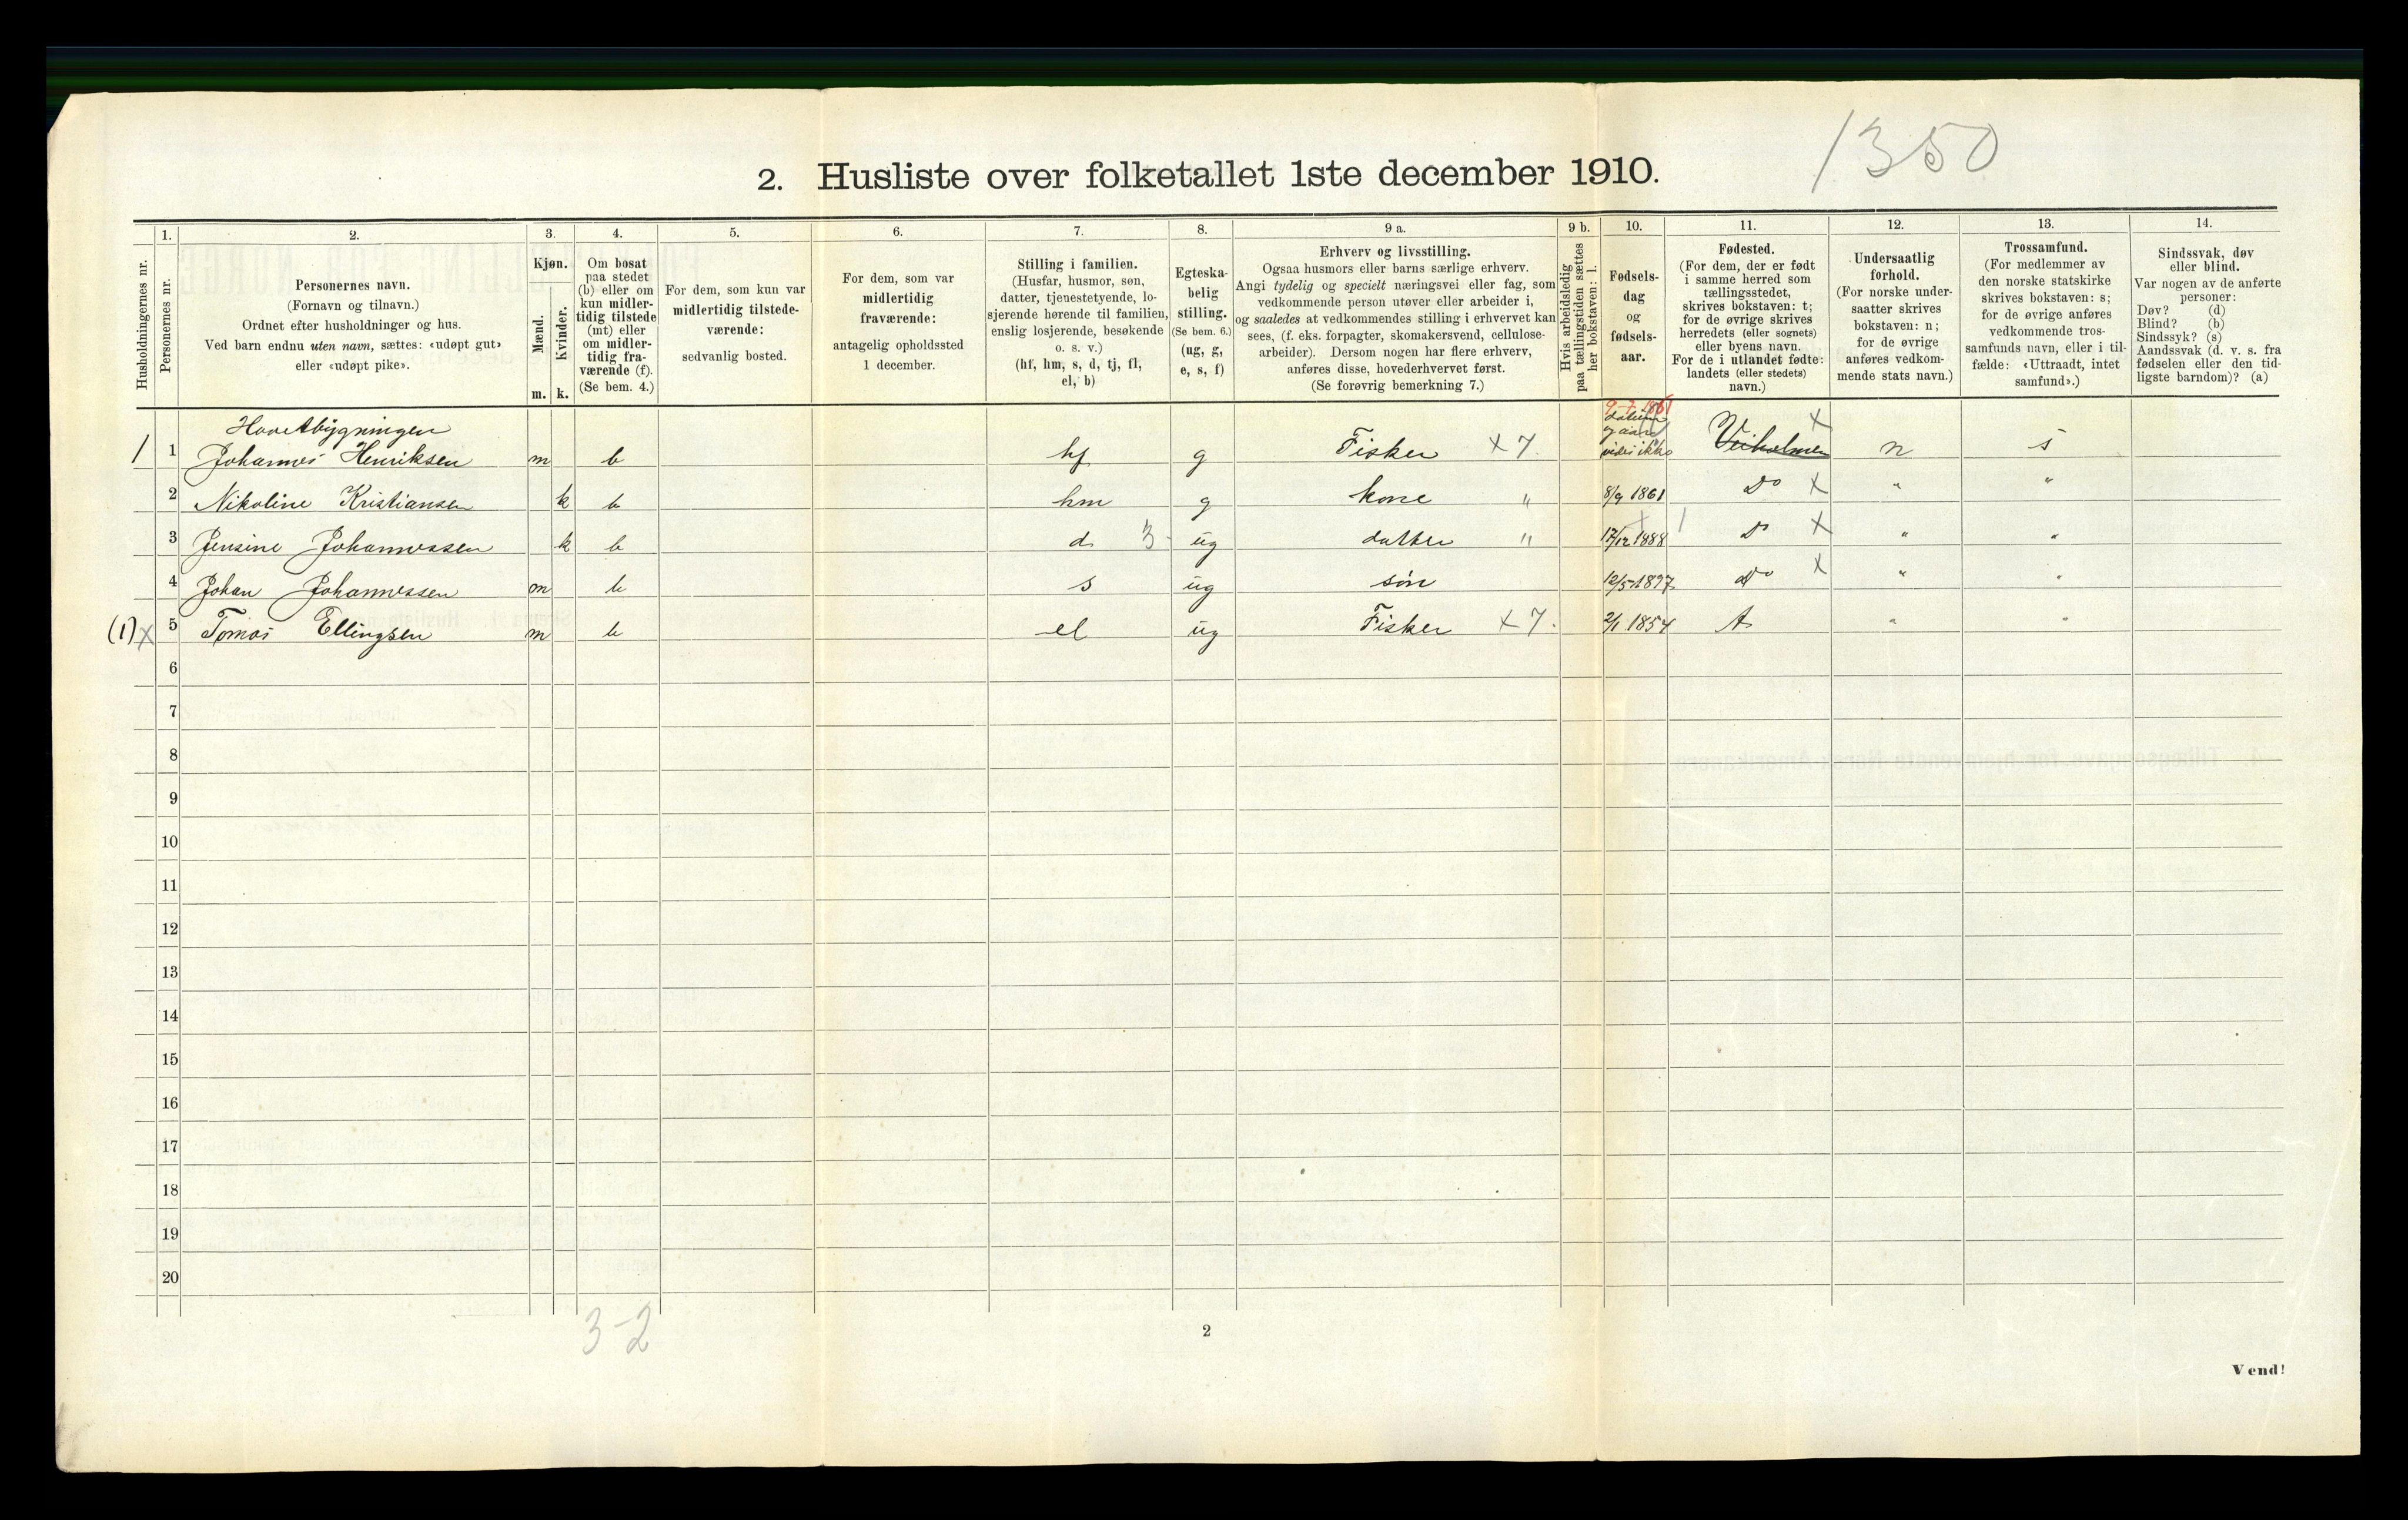 1350
2. Husliste over folketallet 1ste december 1910.
Husholdningernes nr.
1.
Personernes nr.
2.
Personernes navn.
(Fornavn og tilnavn.)
Ordnet efter husholdninger og hus.
Ved barn endnu uten navn, sættes: «udøpt gut»
eller «udøpt pike».
3.
Kjøn.
Mænd.
Kvinder.
m. k.
4.
Om bosat
paa stedet
(b) eller om
kun midler-
tidig tilstede
(mt) eller
om midler-
tidig fra-
værende (f).
(Se bem. 4.)
5.
For dem, som kun var
midlertidig tilstede-
værende:
sedvanlig bosted.
6.
For dem, som var
midlertidig
fraværende:
antagelig opholdssted
1 december.
7.
Stilling i familien.
(Husfar, husmor, søn,
datter, tjenestetyende, lo-
sjerende hørende til familien,
enslig losjerende, besøkende
o. s. v.)
(hf, hm, s, d, tj, fl,
el, b)
8.
Egteska-
belig
stilling.
(Se bem. 6.)
(ug, g,
e, s, f)
9 a.
Erhverv og livsstilling.
Ogsaa husmors eller barns særlige erhverv.
Angi tydelig og specielt næringsvei eller fag, som
vedkommende person utøver eller arbeider i,
og saaledes at vedkommendes stilling i erhvervet kan
sees, (f. eks. forpagter, skomakersvend, cellulose-
arbeider). Dersom nogen har flere erhverv,
anføres disse, hovederhvervet først.
(Se forøvrig bemerkning 7.)
9 b.
Hvis arbeidsledig
paa tællingstiden sættes
her bokstaven: l.
10.
Fødsels-
dag
og
fødsels-
aar.
11.
Fødested.
(For dem, der er født
i samme herred som
tællingsstedet,
skrives bokstaven: t;
for de øvrige skrives
herredets (eller sognets)
eller byens navn.
For de i utlandet fødte:
landets (eller stedets)
navn.)
12.
Undersaatlig
forhold.
(For norske under-
saatter skrives
bokstaven: n;
for de øvrige
anføres vedkom-
mende stats navn.)
13.
Trossamfund.
(For medlemmer av
den norske statskirke
skrives bokstaven: s;
for de øvrige anføres
vedkommende tros-
samfunds navn, eller i til-
fælde: «Uttraadt, intet
samfund».)
14.
Sindssvak, døv
eller blind.
Var nogen av de anførte
personer:
Døv? (d)
Blind? (b)
Sindssyk? (s)
Aandssvak (d. v. s. fra
fødselen eller den tid-
ligste barndom)? (a)
9-7-1861
1 1 Johannes Henriksen m b hf g Fisker x 7 vides ikke Veiholmen x n s
2 Nikoline Kristiansen k b hm g kone " 8/9 1861 Do x " "
3 Jensine Johannessen k b d 3 ug datter " 17/12 1888 Do x " "
4 Johan Johannessen m b s ug søn 12/5 1897 Do x " "
(1) x 5 Tomas Ellingsen m b el ug Fisker x 7. 2/1 1854 " "
6
7
8
9
10
11
12
13
14
15
16
17
18
19
20
3-2
2
Vend!